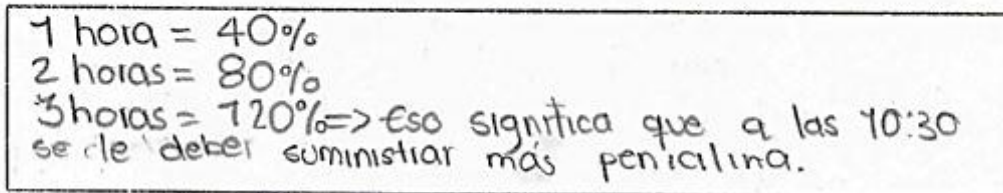 1 hora = 40%
2 horas = 80%
3 horas = 120% => Eso significa que a las 10:30
se le deber suministrar más penicilina.